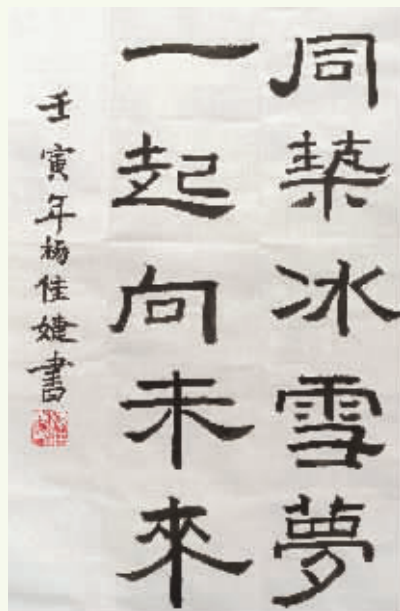 同築冰雪夢
一起向未來
壬寅年楊佳婕書